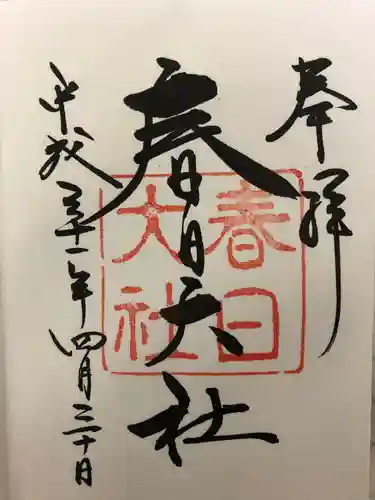 奉拝
春日大社
平成三十一年四月三十日
春日
大社